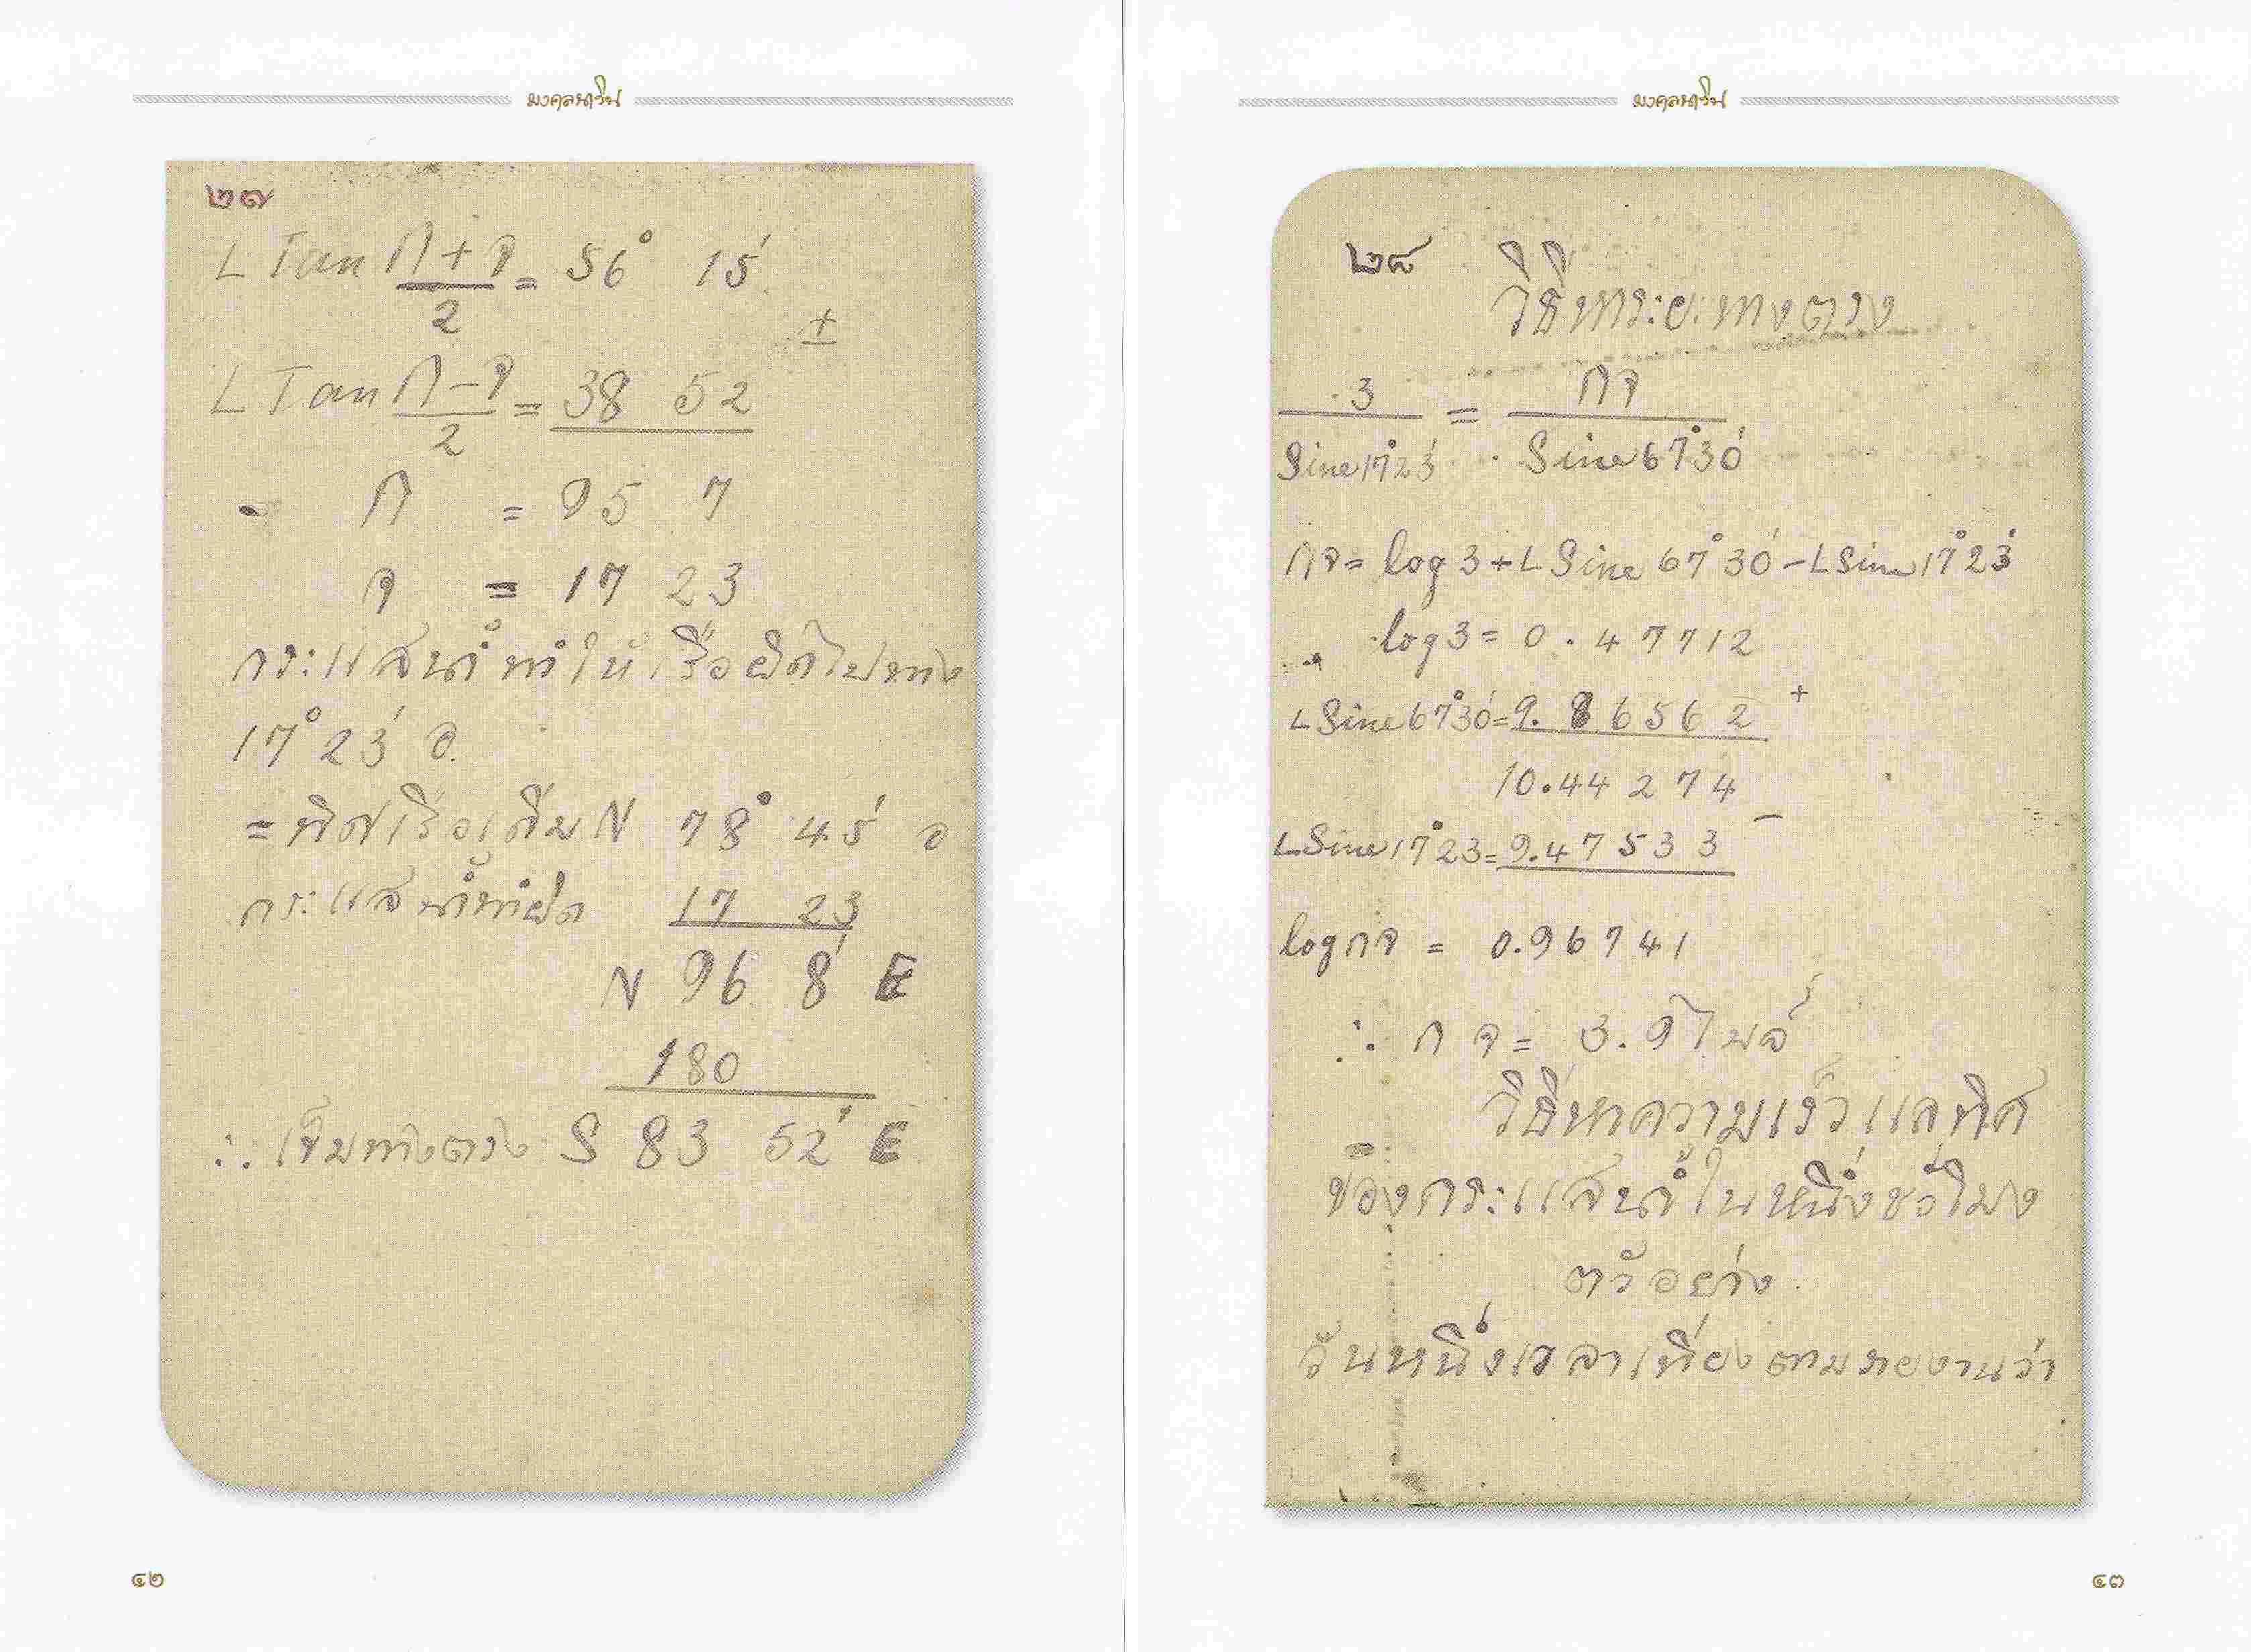 มงคลนาวิน
๒๗
L Tan ก+จ/2 = 56° 15'
±
L Tan ก–จ/2 = 38 52
ก = 95 7
จ = 17 23
กระแสน้ำทำให้เรือผิดไปทาง
17° 23' อ.
= ทิศเรือเดิม N 78° 45' อ
กระแสน้ำทำผิด 17 23
N 96 8' E
180
∴ เข็มทางตรง S 83 52' E
๔๒
มงคลนาวิน
๒๘ วิธีหาระยะทางตรง
3/Sine 17°23' = กจ/Sine 67°30'
กจ = log 3 + L Sine 67°30' – L Sine 17°23'
log 3 = 0.47712
L Sine 67°30' = 9.86562 +
10.44274
L Sine 17°23 = 9.47533 –
log กจ = 0.96741
∴ กจ = 3.9 ไมล์
วิธีหาความเร็วแลทิศ
ของกระแสน้ำในหนึ่งชั่วโมง
ตัวอย่าง
วันหนึ่งเวลาเที่ยงตามรายงานว่า
๔๓